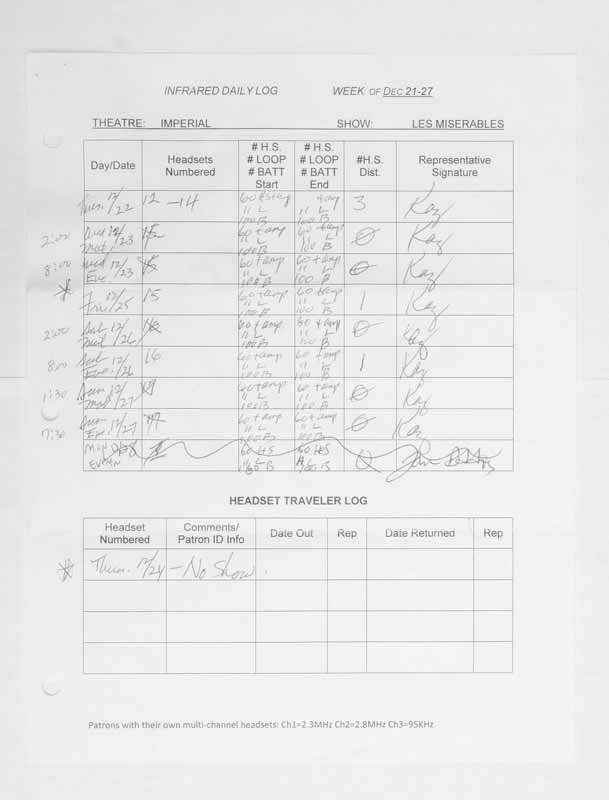 INFRARED DAILY LOG WEEK OF DEC 21-27
THEATRE: IMPERIAL SHOW: LES MISERABLES
Day/Date Headsets Numbered # H.S. # LOOP # BATT Start # H.S. # LOOP # BATT End #H.S. Dist. Representative Signature
Tues. 12/22 12 -14 60 100 B 100 B 3 Kaz
2:00 Wed 12/23 Mat. 60 + amp " L 100 B 60 + amp " L 100 B 0 Kaz
8:00 Wed 12/23 Eve. 60 + amp " L 100 B 60 + amp " L 100 B 0 Kaz
* Fri 12/25 15 60 + amp " L 100 B 60 + amp " L 100 B 1 Kaz
2:00 Sat 12/26 Mat 60 + amp " L 100 B + amp " L 100 B 0 Kaz
8:00 Sat 12/26 Eve. 16 60 + amp " L 100 B 60 + amp " L 100 B 1 Kaz
1:30 Sun 12/27 Mat 60 + amp " L 100 B 60 + amp " L 100 B 0 Kaz
7:30 Sun 12/27 Eve. 60 + amp " L 100 B 60 + amp " L 100 B 0 Kaz
MON 60 HS L B 60 HS L B 0
HEADSET TRAVELER LOG
Headset Numbered Comments/ Patron ID Info Date Out Rep Date Returned Rep
* Thurs. 12/24 - No Show.
Patrons with their own multi-channel headsets: Ch1=2.3MHz Ch2=2.8MHz Ch3=95KHz